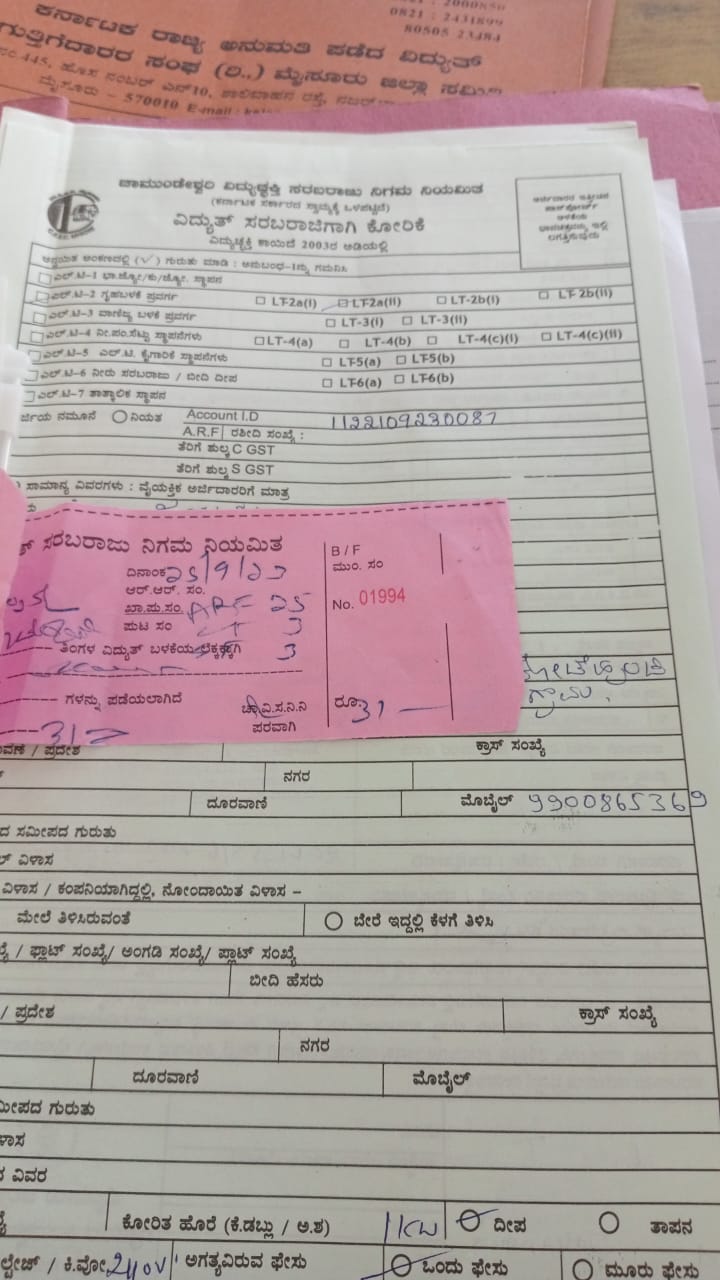 : 2000850
0821 : 2431899
80505 23484
ಕರ್ನಾಟಕ ರಾಜ್ಯ ಅನುಮತಿ ಪಡೆದ ವಿದ್ಯುತ್
ಗುತ್ತಿಗೆದಾರರ ಸಂಘ (ರಿ.,) ಮೈಸೂರು ಜಿಲ್ಲಾ ಸಮಿತಿ
ನಂ.445, ಹೊಸ ನಂಬರ್ ಎನ್10, ರಸ್ತೆ,
ಮೈಸೂರು – 570010 E-mail :
ಚಾಮುಂಡೇಶ್ವರಿ ವಿದ್ಯುಚ್ಛಕ್ತಿ ಸರಬರಾಜು ನಿಗಮ ನಿಯಮಿತ
(ಕರ್ನಾಟಕ ಸರ್ಕಾರದ ಸ್ವಾಮ್ಯಕ್ಕೆ ಒಳಪಟ್ಟಿದೆ)
ವಿದ್ಯುತ್ ಸರಬರಾಜಿಗಾಗಿ ಕೋರಿಕೆ
ವಿದ್ಯುಚ್ಛಕ್ತಿ ಕಾಯಿದೆ 2003ರ ಅಡಿಯಲ್ಲಿ
ಅನ್ವಯಿತ ಅಂಕಣದಲ್ಲಿ (√) ಗುರುತು ಮಾಡಿ : ಅನುಬಂಧ-1ನ್ನು ಗಮನಿಸಿ
ಎಲ್.ಟಿ-1 ಭಾ.ಜ್ಯೋ/ಕು/ಜ್ಯೋ. ಸ್ಥಾಪನ
ಎಲ್.ಟಿ-2 ಗೃಹಬಳಕೆ ಪ್ರವರ್ಗ LT-2a(I) LT-2a(II) LT-2b(I) LT-2b(II)
ಎಲ್.ಟಿ-3 ವಾಣಿಜ್ಯ ಬಳಕೆ ಪ್ರವರ್ಗ LT-3(I) LT-3(II)
ಎಲ್.ಟಿ-4 ನೀ.ಪಂ.ಸೆಟ್ಟು ಸ್ಥಾಪನೆಗಳು LT-4(a) LT-4(b) LT-4(c)(I) LT-4(c)(II)
ಎಲ್.ಟಿ-5 ಎಲ್.ಟಿ. ಕೈಗಾರಿಕೆ ಸ್ಥಾಪನೆಗಳು LT-5(a) LT-5(b)
ಎಲ್.ಟಿ-6 ನೀರು ಸರಬರಾಜು / ಬೀದಿ ದೀಪ LT-6(a) LT-6(b)
ಎಲ್.ಟಿ-7 ತಾತ್ಕಾಲಿಕ ಸ್ಥಾಪನ
ರ್ಜಿಯ ನಮೂನೆ ನಿಯತ Account I.D 1122109230087
A.R.F ರಶೀದಿ ಸಂಖ್ಯೆ :
ತೆರಿಗೆ ಶುಲ್ಕ C GST
ತೆರಿಗೆ ಶುಲ್ಕ S GST
) ಸಾಮಾನ್ಯ ವಿವರಗಳು : ವೈಯಕ್ತಿಕ ಅರ್ಜಿದಾರರಿಗೆ ಮಾತ್ರ
ತ್ ಸರಬರಾಜು ನಿಗಮ ನಿಯಮಿತ
B / F
ಮುಂ. ಸಂ
ದಿನಾಂಕ 25/9/23
ಆರ್.ಆರ್. ಸಂ.
ಖಾ.ಪು.ಸಂ. ARF 25
No. 01994
ಪುಟ ಸಂ 3
ತಿಂಗಳ ವಿದ್ಯುತ್ ಬಳಕೆಯ ಲೆಕ್ಕಕ್ಕಾಗಿ 3
ಗ್ರಾಮ.
ಗಳನ್ನು ಪಡೆಯಲಾಗಿದೆ
ಚಾ.ವಿ.ಸ.ನಿ.ನಿ
ಪರವಾಗಿ
ರೂ. 31 —
31
ಬಡಾವಣೆ / ಪ್ರದೇಶ ಕ್ರಾಸ್ ಸಂಖ್ಯೆ
ನಗರ
ದೂರವಾಣಿ ಮೊಬೈಲ್ 9900865369
ದ ಸಮೀಪದ ಗುರುತು
ಲ್ ವಿಳಾಸ
ವಿಳಾಸ / ಕಂಪನಿಯಾಗಿದ್ದಲ್ಲಿ, ನೋಂದಾಯಿತ ವಿಳಾಸ –
ಮೇಲೆ ತಿಳಿಸಿರುವಂತೆ ಬೇರೆ ಇದ್ದಲ್ಲಿ ಕೆಳಗೆ ತಿಳಿಸಿ
ಖ್ಯೆ / ಫ್ಲಾಟ್ ಸಂಖ್ಯೆ/ ಅಂಗಡಿ ಸಂಖ್ಯೆ/ ಪ್ಲಾಟ್ ಸಂಖ್ಯೆ
ಬೀದಿ ಹೆಸರು
/ ಪ್ರದೇಶ ಕ್ರಾಸ್ ಸಂಖ್ಯೆ
ನಗರ
ದೂರವಾಣಿ ಮೊಬೈಲ್
ಮೀಪದ ಗುರುತು
ಳಾಸ
ದ ವಿವರ
ಕೋರಿತ ಹೊರೆ (ಕೆ.ಡಬ್ಲು / ಅ.ಶ) 1KW ದೀಪ ತಾಪನ
ಲ್ಟೇಜ್ / ಕಿ.ವೋ. 240V ಅಗತ್ಯವಿರುವ ಫೇಸು ಒಂದು ಫೇಸು ಮೂರು ಫೇಸು